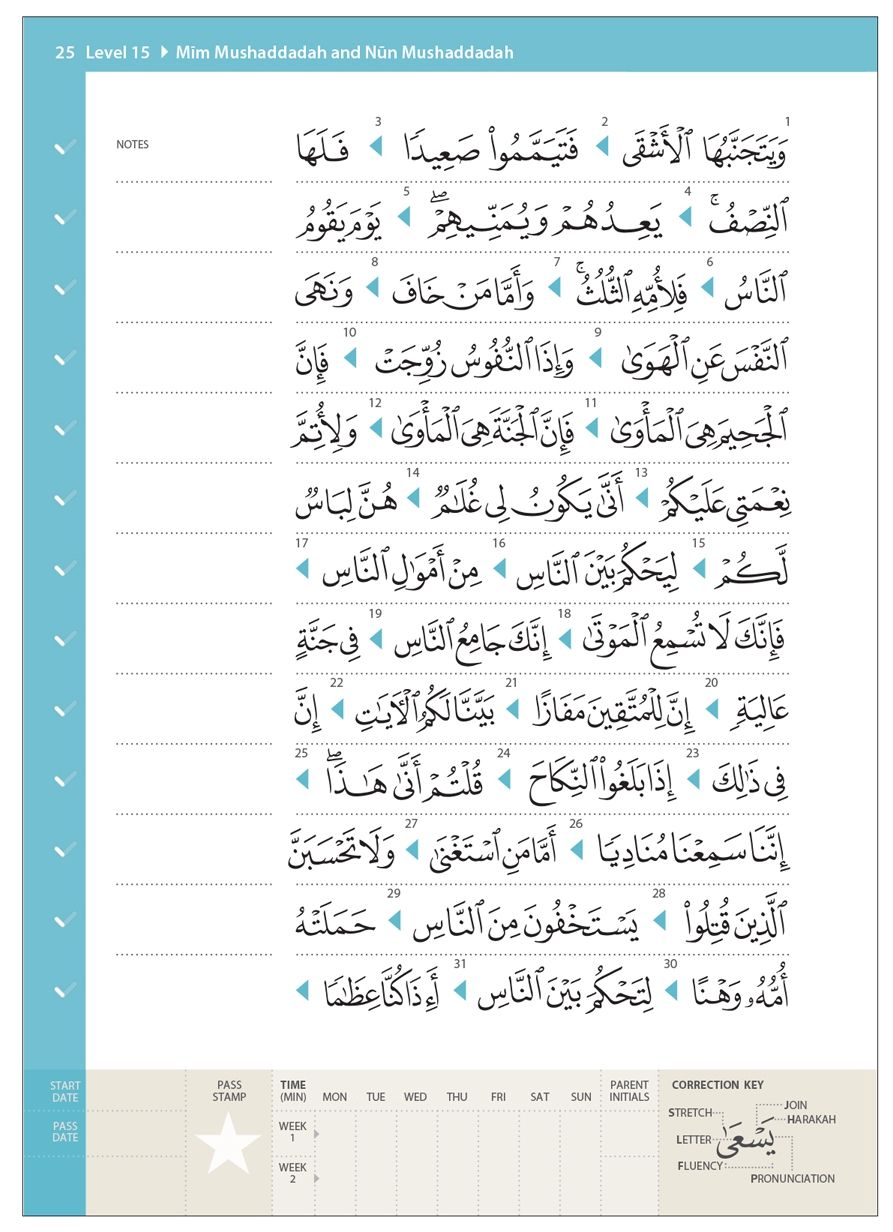 25 Level 15 ▶ Mīm Mushaddadah and Nūn Mushaddadah
NOTES
1 وَيَتَجَنَّبُهَا ٱلْأَشْقَى ◀ 2 فَتَيَمَّمُوا۟ صَعِيدًا ◀ 3 فَلَهَا
ٱلنِّصْفُ ۚ ◀ 4 يَعِدُهُمْ وَيُمَنِّيهِمْ ۖ ◀ 5 يَوْمَ يَقُومُ
ٱلنَّاسُ ◀ 6 فَلِأُمِّهِ ٱلثُّلُثُ ۚ ◀ 7 وَأَمَّا مَنْ خَافَ ◀ 8 وَنَهَى
ٱلنَّفْسَ عَنِ ٱلْهَوَىٰ ◀ 9 وَإِذَا ٱلنُّفُوسُ زُوِّجَتْ ◀ 10 فَإِنَّ
ٱلْجَحِيمَ هِىَ ٱلْمَأْوَىٰ ◀ 11 فَإِنَّ ٱلْجَنَّةَ هِىَ ٱلْمَأْوَىٰ ◀ 12 وَلِأُتِمَّ
نِعْمَتِى عَلَيْكُمْ ◀ 13 أَنَّىٰ يَكُونُ لِى غُلَٰمٌ ◀ 14 هُنَّ لِبَاسٌ
لَّكُمْ ◀ 15 لِيَحْكُمَ بَيْنَ ٱلنَّاسِ ◀ 16 مِنْ أَمْوَٰلِ ٱلنَّاسِ ◀ 17
فَإِنَّكَ لَا تُسْمِعُ ٱلْمَوْتَىٰ ◀ 18 إِنَّكَ جَامِعُ ٱلنَّاسِ ◀ 19 فِى جَنَّةٍ
عَالِيَةٍ ◀ 20 إِنَّ لِلْمُتَّقِينَ مَفَازًا ◀ 21 بَيَّنَّا لَكُمُ ٱلْـَٔايَٰتِ ◀ 22 إِنَّ
فِى ذَٰلِكَ ◀ 23 إِذَا بَلَغُوا۟ ٱلنِّكَاحَ ◀ 24 قُلْتُمْ أَنَّىٰ هَٰذَا ۖ ◀ 25
إِنَّنَا سَمِعْنَا مُنَادِيًا ◀ 26 أَمَّا مَنِ ٱسْتَغْنَىٰ ◀ 27 وَلَا تَحْسَبَنَّ
ٱلَّذِينَ قُتِلُوا۟ ◀ 28 يَسْتَخْفُونَ مِنَ ٱلنَّاسِ ◀ 29 حَمَلَتْهُ
أُمُّهُۥ وَهْنًا ◀ 30 لِتَحْكُمَ بَيْنَ ٱلنَّاسِ ◀ 31 أَءِذَا كُنَّا عِظَٰمًا ◀
START DATE
PASS DATE
PASS STAMP
TIME (MIN) MON TUE WED THU FRI SAT SUN PARENT INITIALS
WEEK 1
WEEK 2
CORRECTION KEY
STRETCH
JOIN
HARAKAH
LETTER
يَسْعَىٰ
FLUENCY
PRONUNCIATION